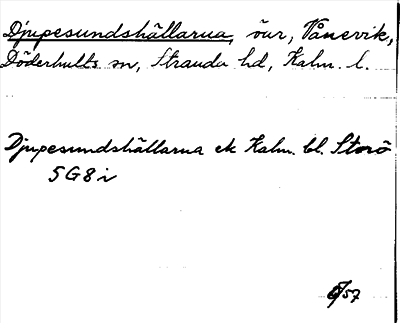 Djupesundshällarna, öar, Vånevik,
Döderhults sn, Stranda hd, Kalm. l.
Djupesundshällarna ek Kalm. bl. Storö
5G8i
6/57